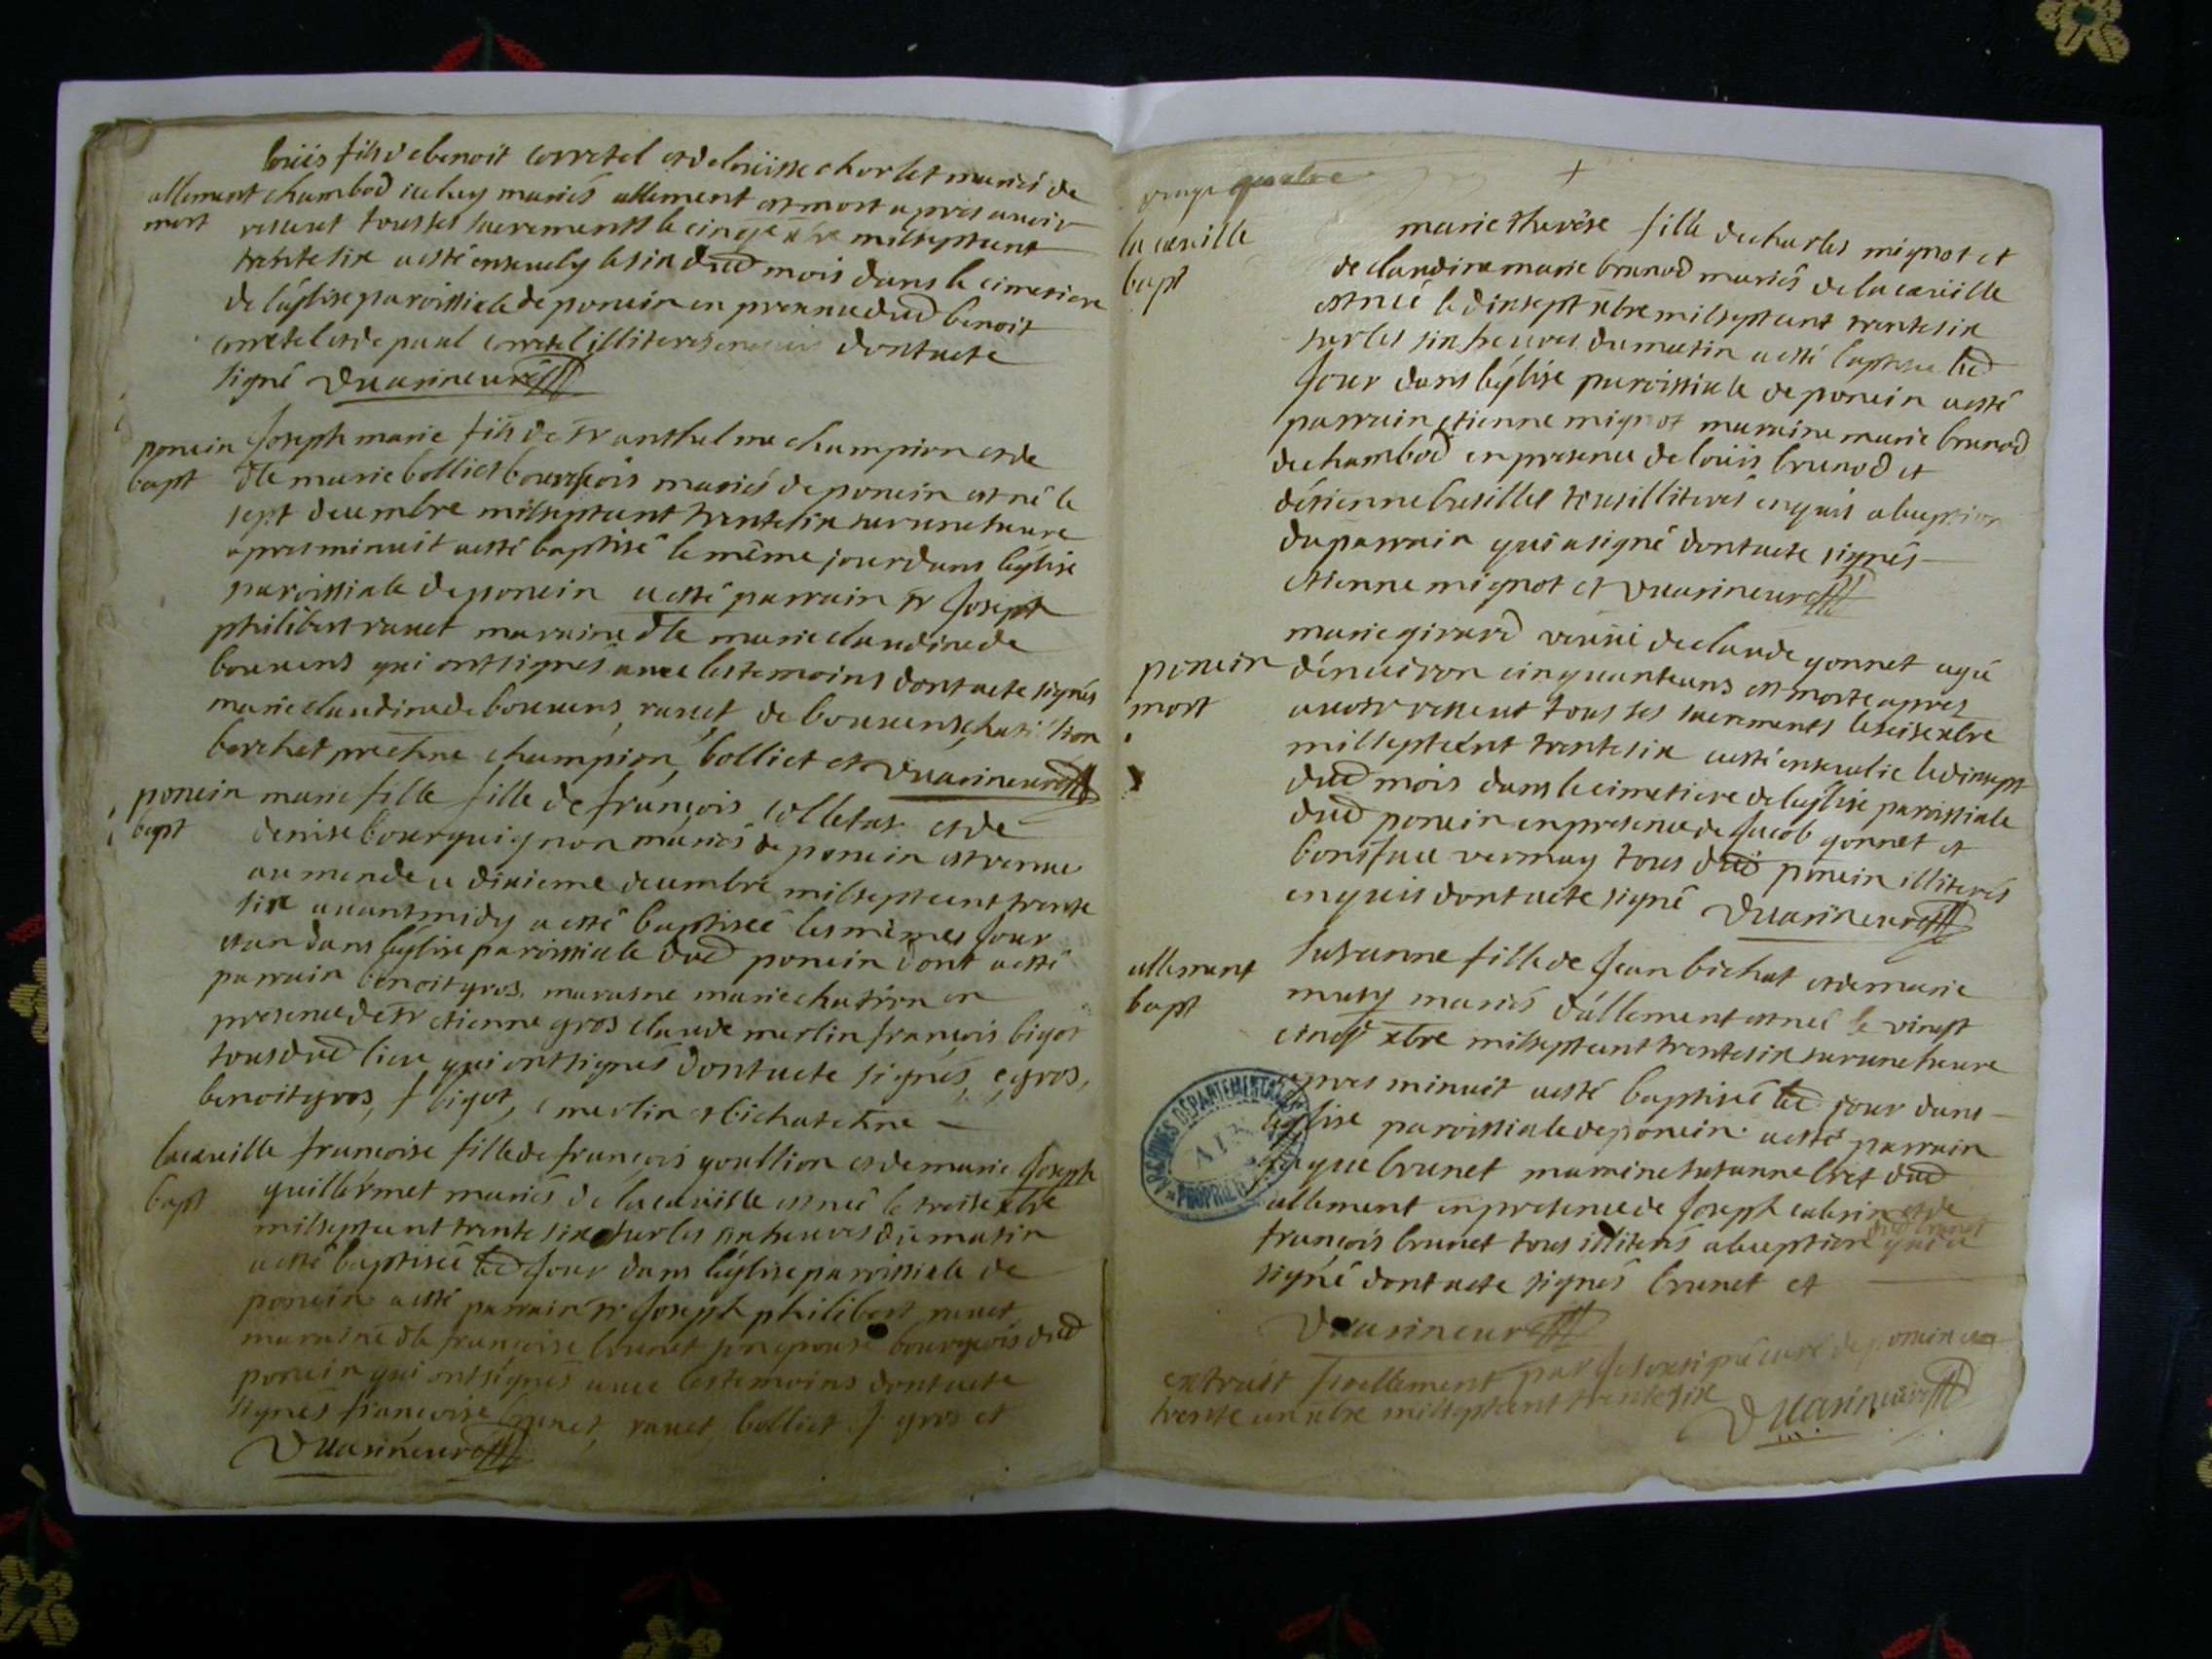 louis fils de benoit corretel et de louisse chorlet mariés de
allement chambod icelluy mariés allement est mort apres avoir
mort receuet tous ses sacrements le cinq xbre milseptcent
trente six a esté ensevely le six dud mois dans le cimetiere
de l'églize paroissiale de poncin en presence dud benoit
corretel et de paul corretel illiteres enquis dont acte
signé Duasineur
poncin Joseph marie fils de sr anthelme champion et de
bapt dlle marie bolliet bourgeois mariés de poncin est né le
sept decembre milseptcent trente six sur une heure
apres minuit a esté baptisé le même jour dans leglise
paroissiale de poncin a esté parrain sr Joseph
philibert ravet maraine dlle marie claudine de
bouvens qui ont signés avec les temoins dont acte signés
marie claudine de bouvens, ravet, de bouvens chatillion
berchet prechne champion, bolliet et Duasineur
poncin marie fille fille de françois colletat et de
bapt denise bourguignon mariés de poncin est venue
au monde le dixieme decembre milseptcent trente
six avant midy a esté baptiseé les mêmes jour
et an dans léglise paroissiale dud poncin dont a esté
parrain benoit gros maraine marie chatiron en
presence de sr etienne gros claude merlin françois bigot
tous dud lieu qui ont signés dont acte signés, e gros,
benoit gros, f bigot, c merlin et bichat chne
lacueille francoise fille de françois goullion et de marie Joseph
bapt guillermet mariés de la cueille est née le treise xbre
milseptcent trente six sur les six heures du matin
a esté baptiseé led jour dans léglise paroissiale de
poncin a esté parrain sr Joseph philibert ravet
maraine dlle francoise brunet son epouse bourgeois dud
poncin qui ont signés avec les temoins dont acte
signés francoise brunet, ravet, bolliet f gros et
Duasineur
page quatre
la cueille marie therése fille de charles mignot et
bapt de claudine marie brunod mariés de la cueille
est née le dixsept xbre milseptcent trente six
sur les six heures du matin a esté baptisee led
Jour dans léglise paroissiale de poncin a esté
parrain etienne mignot maraine marie brunod
de chambod en presence de louis brunod et
détienne bresillet tous illiterés enquis a leception
du parrain qui a signé dont acte signés
etienne mignot et Duasineur
marie girard veuve de claude gonnet agée
poncin dénviron cinquante ans est morte apres
mort avoir resceut tous ses sacrements le seise xbre
milseptcent trente six a esté ensevelie le dixsept
dud mois dans le cimetiere de léglise paroissiale
dud poncin en presence de Jacob gonnet et
boniface vermay tous dud poncin illiterés
enquis dont acte signé Duasineur
allement Susanne fille de Jean bichat et de marie
bapt mury mariés d'allement est née le vingt
cinq xbre milseptcent trente six sur une heure
apres minuit a esté baptisée led jour dans
léglise paroissiale de poncin. a esté parrain
Jaque brunet maraine susanne bret dud
allement en presence de Joseph cabrin et de
françois brunet tous illiterés a leception dud brunet qui a
signé dont acte signés brunet et
Duasineur
extrait fidellement par Je soussigné curé de poncin ce
trente un xbre milseptcent trente six
Duasineur
ARCHIVES DEPARTEMENTALES
AIN
PROPRIETE